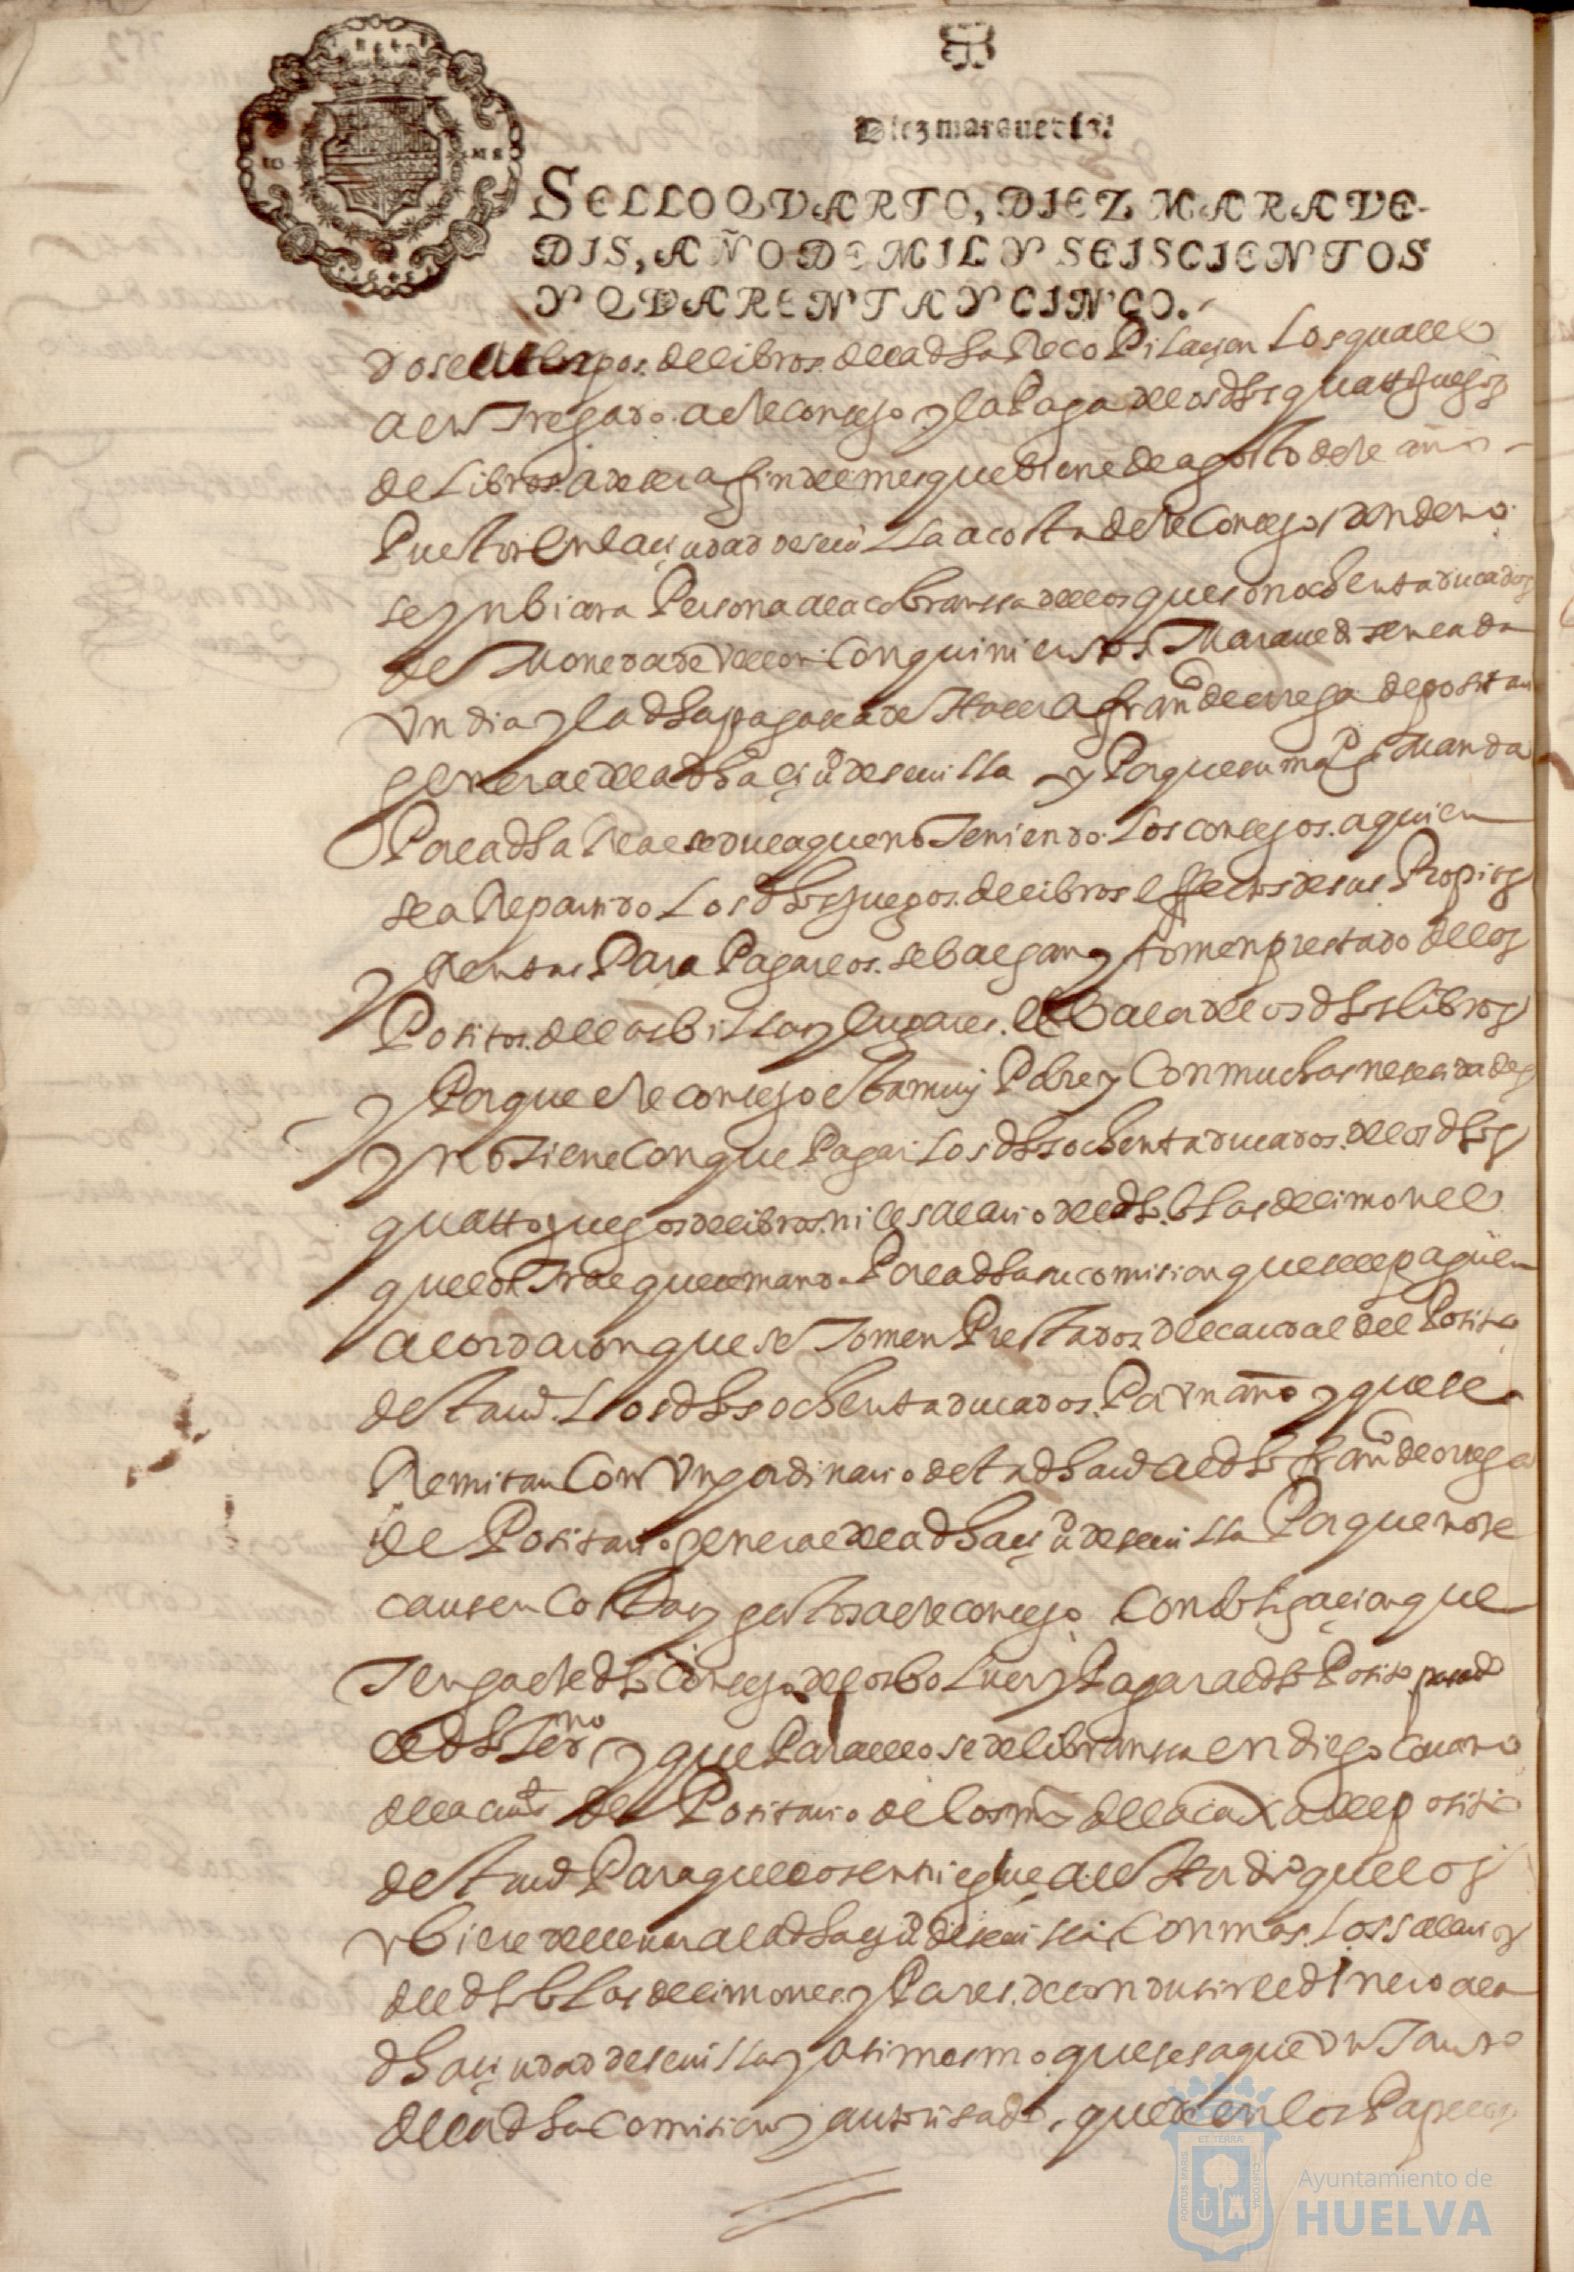 Diez maravedis
SELLO QVARTO, DIEZ MARAVE-
DIS, AÑO DE MIL Y SEISCIENTOS
Y QVARENTA Y CINCO.
dose cuerpos de libros de la dha Recopilaçion Los quales
a entregado a este concejo y la paga de los dhos quatto juegos
de Libros a de ser a fin del mes que biene de agosto deste año
Puestos en la ciudad de seuilla a costa deste Concejo donde no
se ynbiara Persona a la cobransa dellos que son ochenta ducados
de Moneda de vellon con quinientos Maravedis en cada
Vn dia y la dha paga se a de Haser a franco de ortega depositario
general de la dha çiud de seuilla y Porque su magd Manda
Por la dha Real sedula que no Teniendo Los concejos a quien
se a Repartido Los dhos juegos de libros effectos de sus Propios
y Rentas Para Pagarlos se balgan y tomen prestado de los
Positos de las billas y lugares el balor de los dhos libros
y Porque este concejo esta muy Pobre y Con muchas nesesidades
y no Tiene Con que Pagar Los dhos ochenta ducados de los dhos
quatto juegos de libros ni el salario del dho blas de limones
que los Trae que le mando Por la dha su comision que se le paguen
acordaron que se Tomen Prestados del caudal del Posito
desta ud Los dhos ochenta ducados Por vn año y que se
Remitan Con Vn hordinario desta dha ud al dho franco de ortega
de Positario general de la dha çiud de seuilla Porque no se
causen Costas y gastos a este concejo Con obligaçion que
Tenga este dho Concejo de los boluer y Pagar al dho Posito pasado
el dho Termno y que Para ello se de libransa en diego
de la de Positario de los mrs de la caxa del posito
desta ud Para que los entriegue al Hordino que los
vbiere de lleuar a la dha çiud de seuilla Con mas Los salarios
del dho blas de limones y Portes de condusir el dinero a la
dha çiudad de seuilla y asimesmo que se saque vn Tanto
de la dha Comision y autorisado quede en los Papeles
Ayuntamiento de
HUELVA